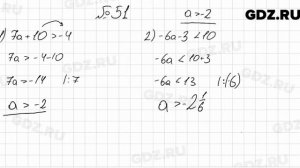 № 51
a > -2
GDZ.RU
1) 7a+10 > -4
7a > -4-10
7a > -14 |:7
a > -2
2) -6a-3 < 10
-6a < 10+3
-6a < 13 |:(6)
a > -2 1/6
GDZ.RU
GDZ.RU